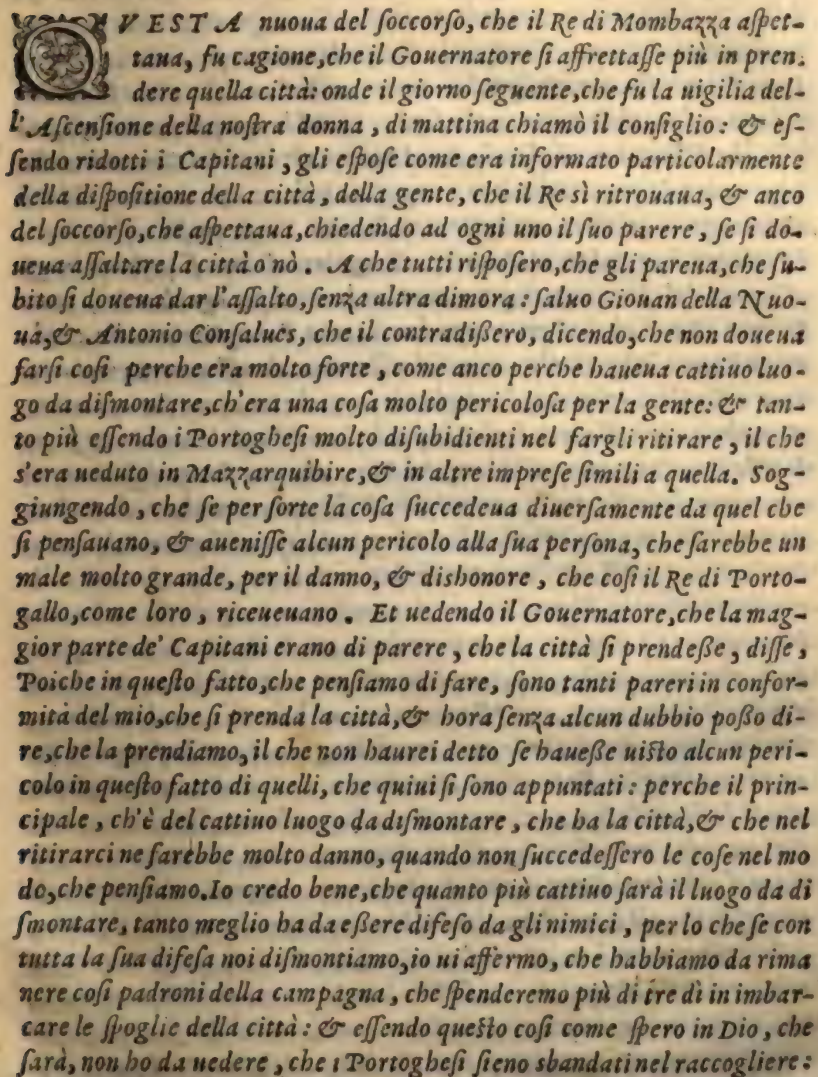 QVESTA nuoua del ſoccorſo, che il Re di Mombazza aſpet-
taua, fu cagione, che il Gouernatore ſi affrettaſſe più in pren-
dere quella città: onde il giorno ſeguente, che fu la uigilia del-
l'Aſcenſione della noſtra donna, di mattina chiamò il conſiglio: & eſ-
ſendo ridotti i Capitani, gli eſpoſe come era informato particolarmente
della diſpoſitione della città, della gente, che il Re sì ritrouaua, & anco
del ſoccorſo, che aſpettaua, chiedendo ad ogni uno il ſuo parere, ſe ſi do-
ueua aſſaltare la città o nò. A che tutti riſpoſero, che gli pareua, che ſu-
bito ſi doueua dar l'aſſalto, ſenza altra dimora: ſaluo Giouan della Nuo-
ua, & Antonio Conſalues, che il contradißero, dicendo, che non doueua
farſi coſi perche era molto forte, come anco perche haueua cattiuo luo-
go da diſmontare, ch'era una coſa molto pericoloſa per la gente: & tan-
to più eſſendo i Portogheſi molto diſubidienti nel fargli ritirare, il che
s'era ueduto in Mazzarquibire, & in altre impreſe ſimili a quella. Sog-
giungendo, che ſe per ſorte la coſa ſuccedeua diuerſamente da quel che
ſi penſauano, & aueniſſe alcun pericolo alla ſua perſona, che ſarebbe un
male molto grande, per il danno, & dishonore, che coſi il Re di Porto-
gallo, come loro, riceueuano. Et uedendo il Gouernatore, che la mag-
gior parte de' Capitani erano di parere, che la città ſi prendeße, diſſe,
Poiche in queſto fatto, che penſiamo di fare, ſono tanti pareri in confor-
mità del mio, che ſi prenda la città, & hora ſenza alcun dubbio poßo di-
re, che la prendiamo, il che non haurei detto ſe haueße uiſto alcun peri-
colo in queſto fatto di quelli, che quiui ſi ſono appuntati: perche il prin-
cipale, ch'è del cattiuo luogo da diſmontare, che ha la città, & che nel
ritirarci ne farebbe molto danno, quando non ſuccedeſſero le coſe nel mo
do, che penſiamo. Io credo bene, che quanto più cattiuo ſarà il luogo da di
ſmontare, tanto meglio ha da eßere difeſo da gli nimici, per lo che ſe con
tutta la ſua difeſa noi diſmontiamo, io ui affermo, che habbiamo da rima
nere coſi padroni della campagna, che ſpenderemo più di tre dì in imbar-
care le ſpoglie della città: & eſſendo queſto coſi come ſpero in Dio, che
ſarà, non ho da uedere, che i Portogheſi ſieno sbandati nel raccogliere: